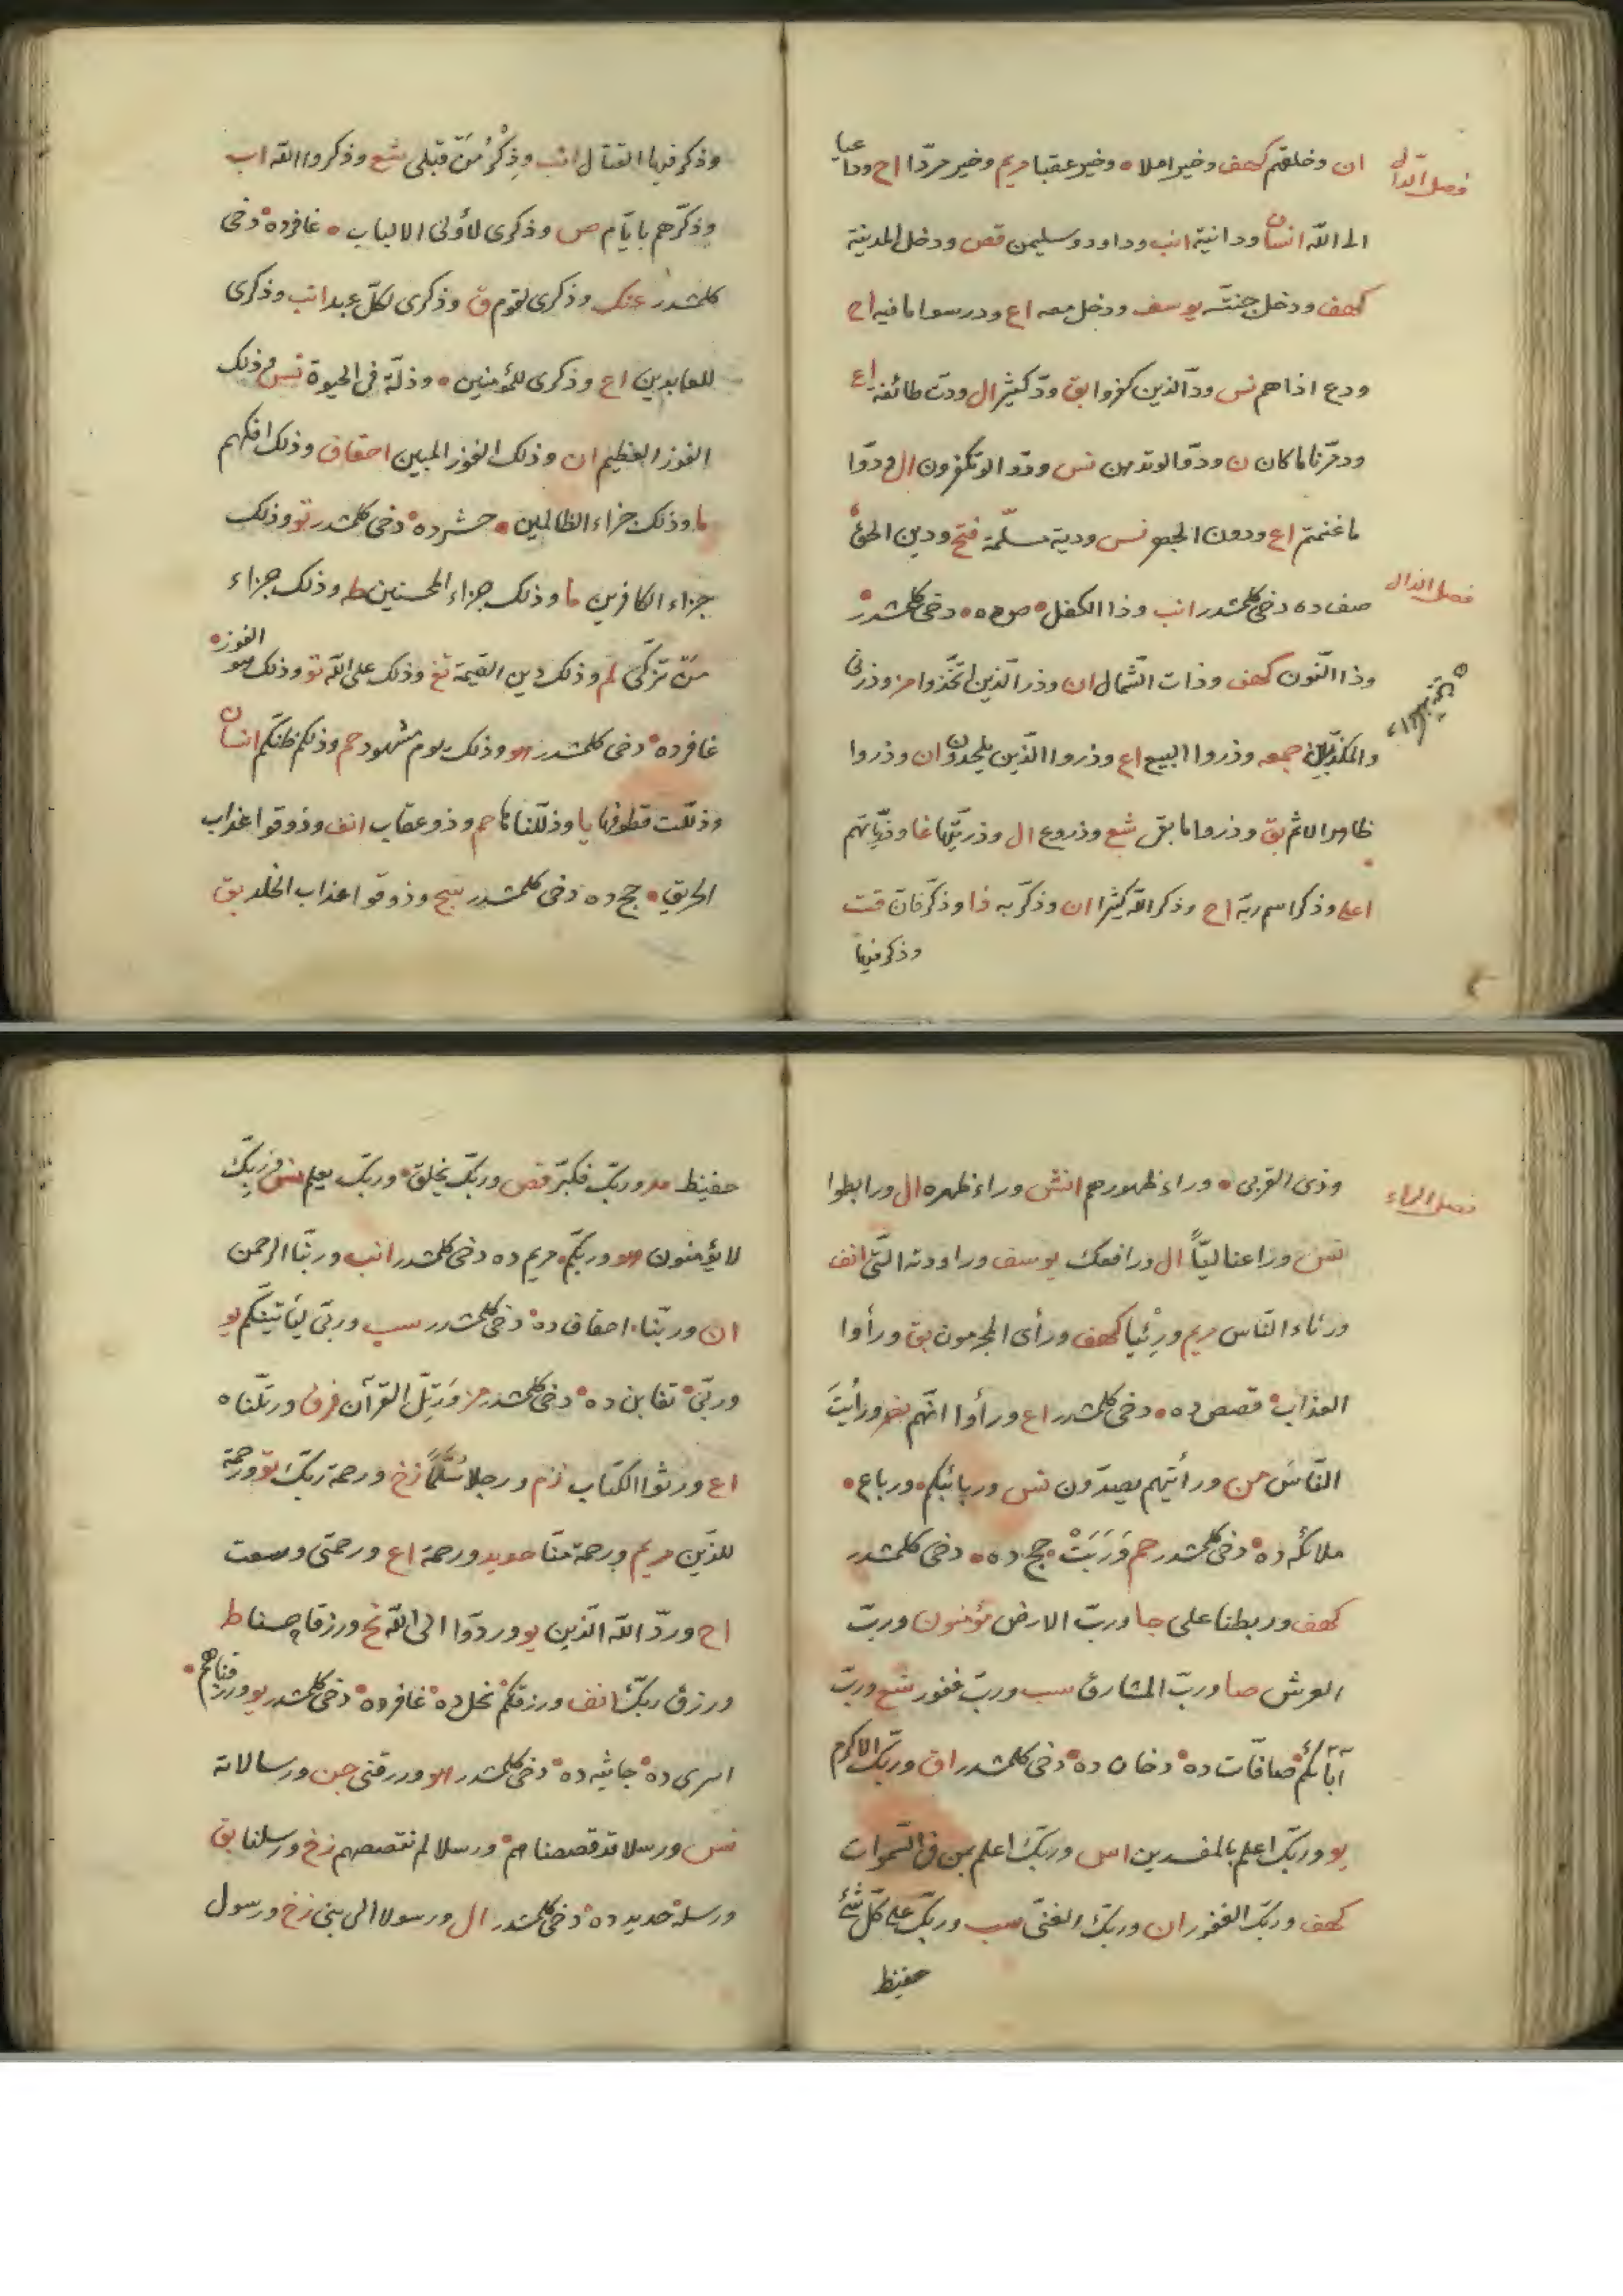 فصل الدال
ان وخلقهم كهف وخير املا ه وخير عقبا مريم وخير مردّا اح وداعيا
الى الله انسان ودانية انب وداود وسليمن قص ودخل المدينة
كهف ودخل جنته يوسف ودخل معه اع ودرسوا ما فيه اح
ودع اذاهم نس ودّ الذين كفروا بق ودّ كثير ال ودت طائفة اع
ودمّرنا ما كان ن ودّوا لو تدهن نس ودّوا لو تكفرون ال ودّوا
ما عنتم اع ودون الجهر نس ودية مسلّمة فتح ودين الحق
فصل الذال
صف ده دخى كلمشدر انب وذا الكفل ص ده دخى كلمشدر
وذا النّون كهف وذات الشّمال ان وذر الّذين اتّخذوا مز وذرنى
والمكذّبين جمعه وذروا البيع اع وذروا الّذين يلحدون ان وذروا
ظاهر الاثم بق وذروا ما بقى شع وذروع ال وذريّتها غا وذرّيّاتهم
اعلى وذكر اسم ربّه اح وذكر الله كثيرا ان وذكّر به ذا وذكّر فان قت
وذكر فيها
وذكر فيها القتال انب وذِكْرُ مَنْ قبلى شع وذكروا الله اب
وذكّرهم بايّام ص وذكرى لأولى الالباب غافرده دخى
كلمشدر عنك وذكرى لقوم ق وذكرى لكلّ عبد انب وذكرى
للعابدين اع وذكرى للمؤمنين وذلّة فى الحيوة نس وذلك
الفوز العظيم ان وذلك الفوز المبين احقاف وذلك افكهم
ما وذلك جزاء الظالمين حشرده دخى كلمشدر تو وذلك
جزاء الكافرين ما وذلك جزاء المحسنين طه وذلك جزاء
مَنْ تزكّى لم وذلك دين القيمة تغ وذلك على الله تو وذلك هو الفوز
غافرده دخى كلمشدر هو وذلك يوم مشهود حم وذلكم ظنّكم انسان
وذلّلت قطوفها يا وذلّلناها حم وذو عقاب انف وذوقوا عذاب
الحريق حج ده دخى كلمشدر سج وذوقوا عذاب الخلد بق
فصل الراء
وذى القربى وراء ظهورهم انش وراء ظهره ال ورابطوا
وراعنا ليّاً ال ورافعك يوسف وراودته الّتى انف
ورئاء النّاس مريم ورِئْيا كهف ورأى المجرمون بق ورأوا
العذاب قصص ده دخى كلمشدر اع ورأوا انّهم نصر ورأيتَ
النّاسَ من ورأيتهم يصدّون نس وربائبكم ورباع
ملائكه ده دخى كلمشدر حم وَرَبَتْ حج ده دخى كلمشدر
كهف وربطنا على جا وربّ الارض مؤمنون وربّ
العرش صا وربّ المشارق سب وربّ غفور شع وربّ
آبائكم صافّات ده دخان ده دخى كلمشدر اق وربّك الاكرم
يو وربّك اعلم بالمفسدين اس وربّك اعلم بمن فى السّموات
كهف وربّك الغفور ان وربّك الغنىّ سب وربّك على كلّ شئ
حفيظ
حفيظ مد وربّك فكبّر قص وربّك يخلق وربّك يعلم نس وربّك
لا يؤمنون هو وربّكم مريم ده دخى كلمشدر انب وربّنا الرحمن
ان وربّنا احقاف ده دخى كلمشدر سب وربّى لتأتينّكم يو
وربّى تغابن ده دخى كلمشدر مز وَرَتِّل القرآن فرق ورتّلناه
اع ورثوا الكتاب زم ورجلا سلماً زخ ورحمة ربّك تو ورحمة
للّذين مريم ورحمة منّا حديد ورحمة اع ورحمتى وسعت
اح وردّ الله الّذين يو وردّوا الى الله نح ورزقا حسنا ط
ورزق ربّك انف ورزقكم نحل ده غافرده دخى كلمشدر يو ورزقناهم
اسرى ده جاثيه ده دخى كلمشدر هو ورزقنى جن ورسالاته
نس ورسلا قد قصصناهم ورسلا لم نقصصهم زخ ورسلنا بق
ورسله حديد ده دخى كلمشدر ال ورسولا الى بنى زخ ورسول